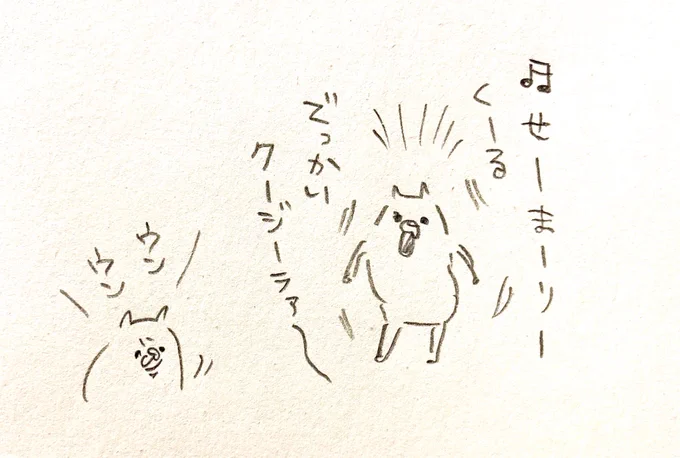 ♫せーまーりー
くーる
でっかい
クージーラァ〜
ウン
ウン